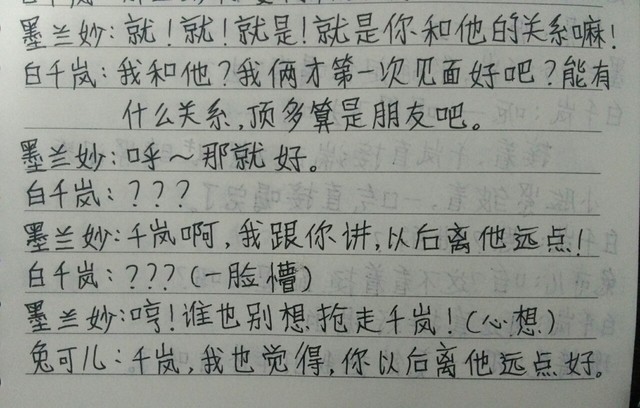 墨兰妙:就!就!就是!就是你和他的关系嘛!
白千岚:我和他?我俩才第一次见面好吧?能有
什么关系,顶多算是朋友吧。
墨兰妙:呼~那就好。
白千岚:???
墨兰妙:千岚啊,我跟你讲,以后离他远点!
白千岚:???(一脸懵)
墨兰妙:哼!谁也别想抢走千岚!(心想)
兔可儿:千岚,我也觉得,你以后离他远点好。